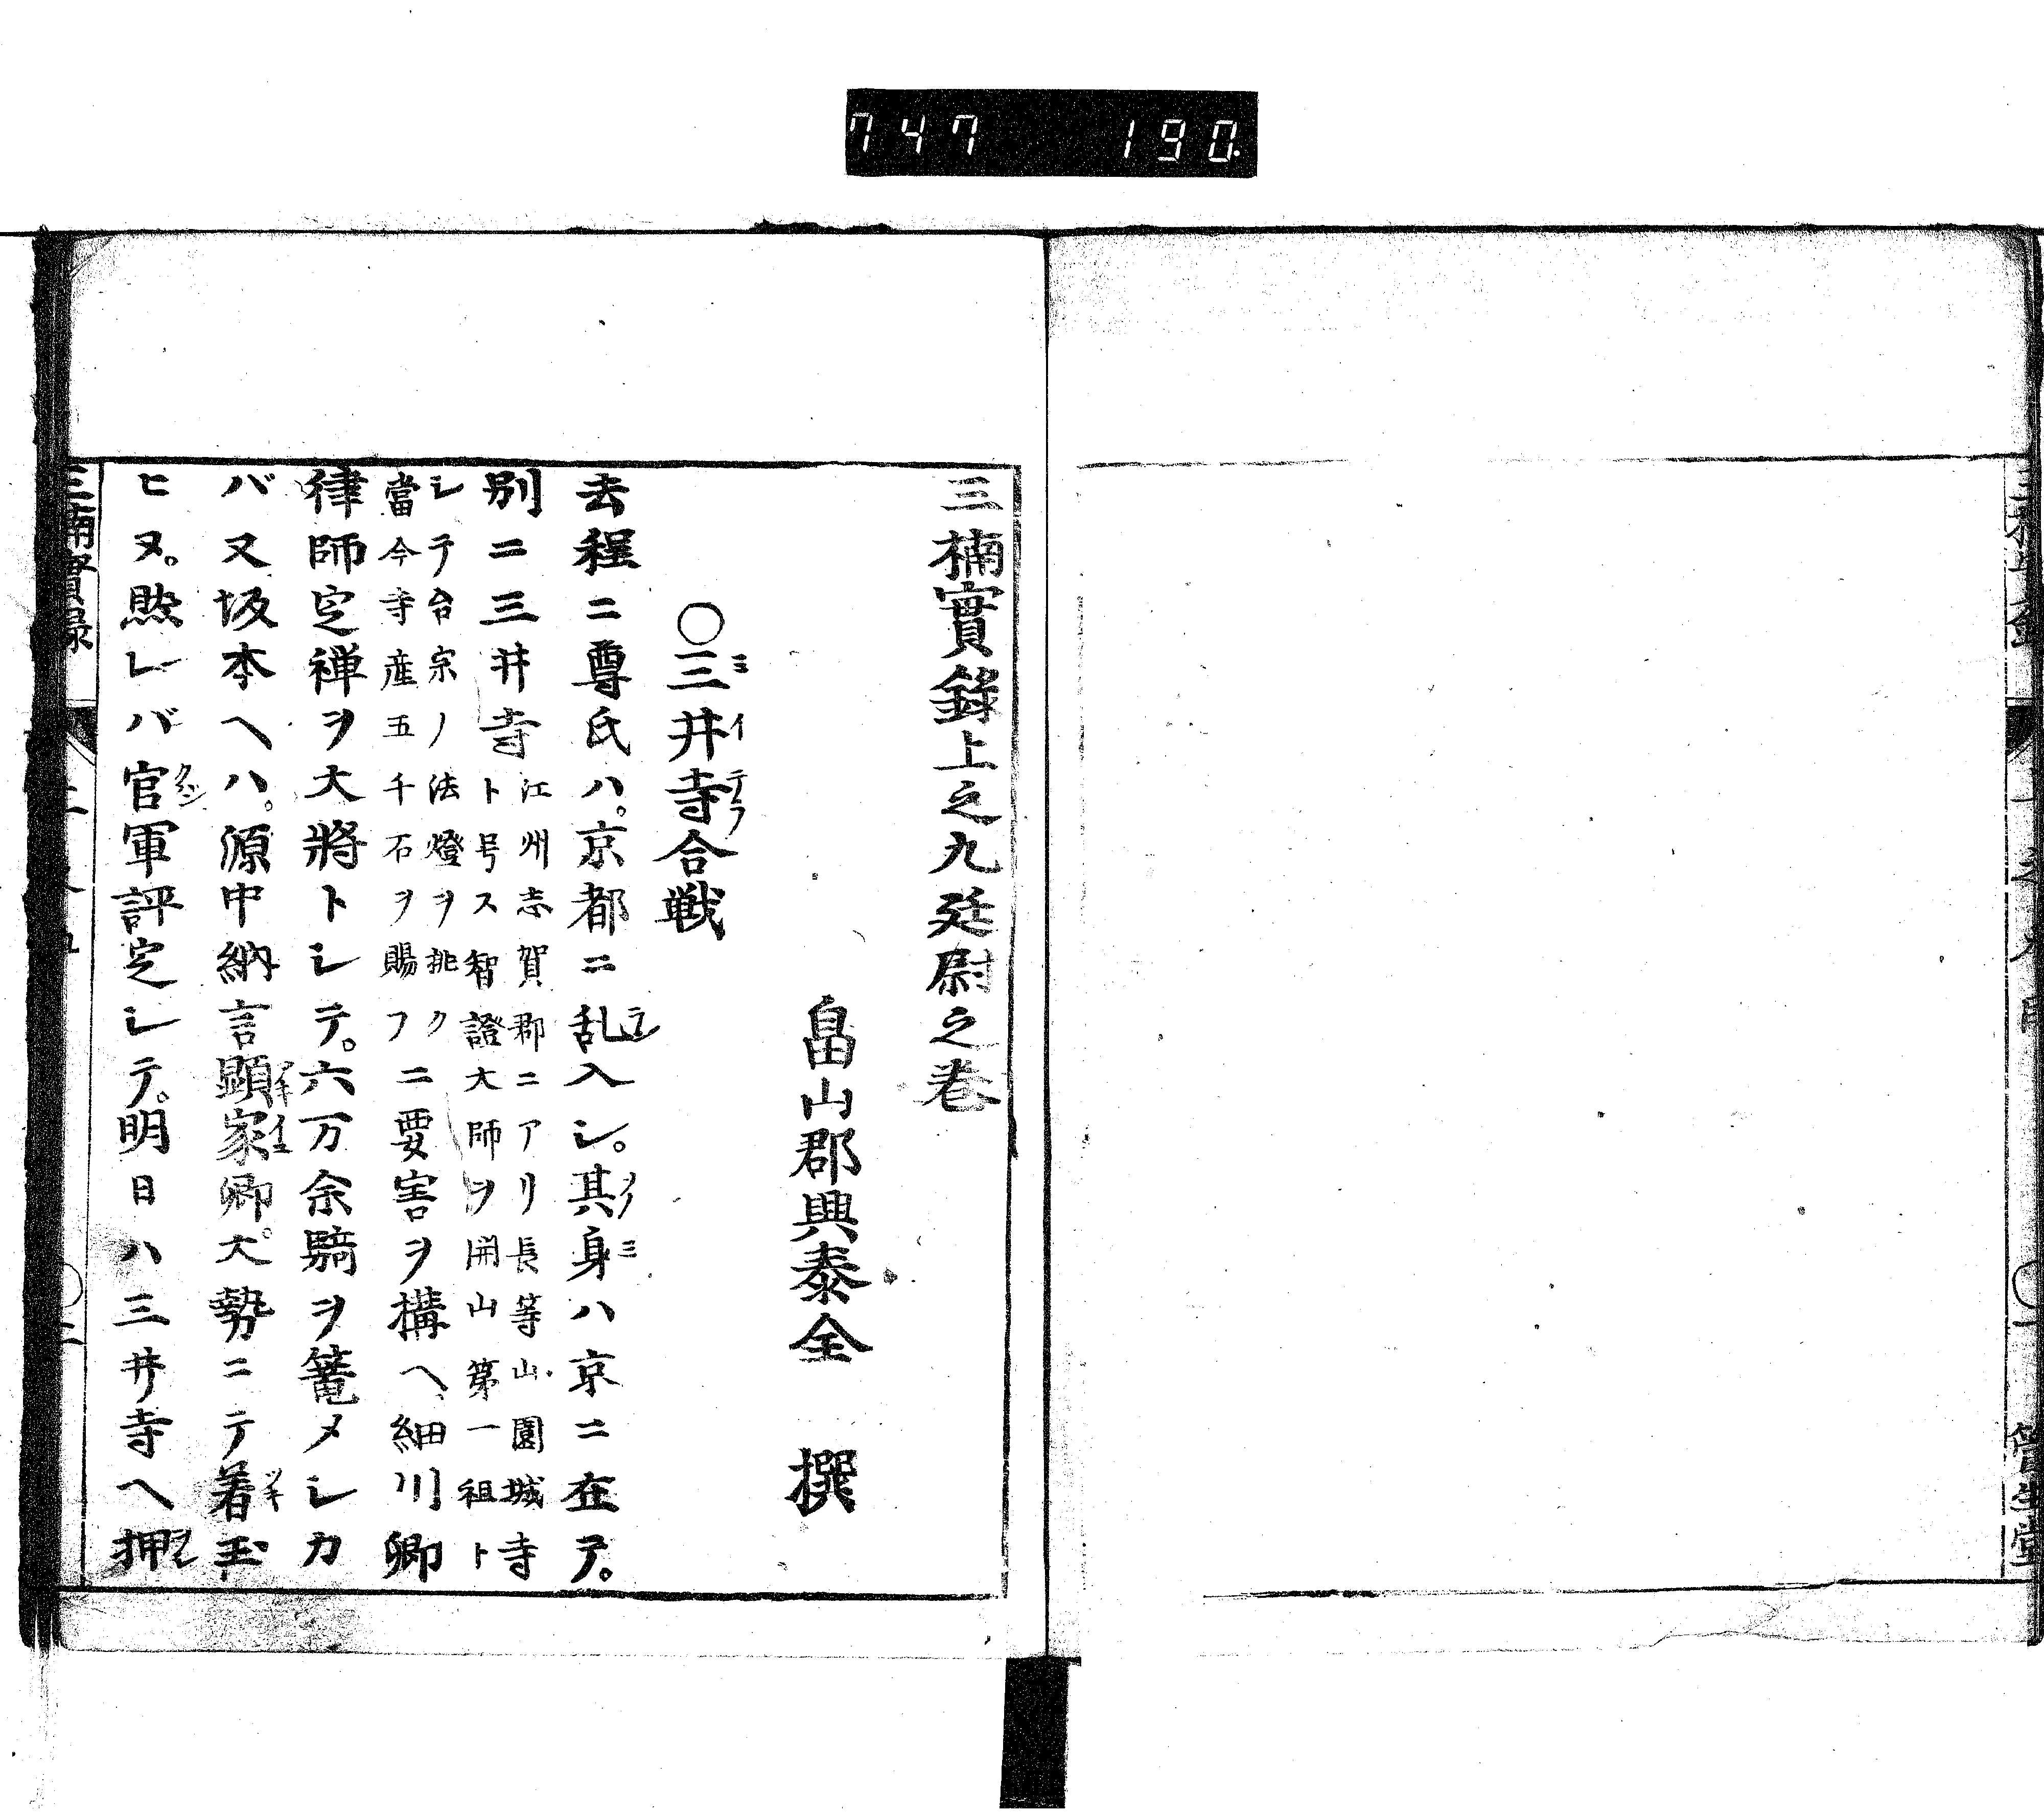 747 190
三楠實錄上之九廷尉之巻
畠山郡興泰全 撰
〇三井寺合戦
去程ニ尊氏ハ。京都ニ乱入シ。其身ハ京ニ在テ。
別ニ三井寺
江州志賀郡ニアリ長等山園城寺
ト号ス智證大師ヲ開山第一祖ト
シテ台宗ノ法燈ヲ挑ク
當今寺産五千石ヲ賜フ
ニ要害ヲ構ヘ、細川卿
律師定禅ヲ大將トシテ。六万余騎ヲ篭メシカ
バ又坂本ヘハ。源中納言顕家卿。大勢ニテ着玉
ヒヌ。然レバ官軍評定シテ。明日ハ三井寺ヘ押
三楠實録